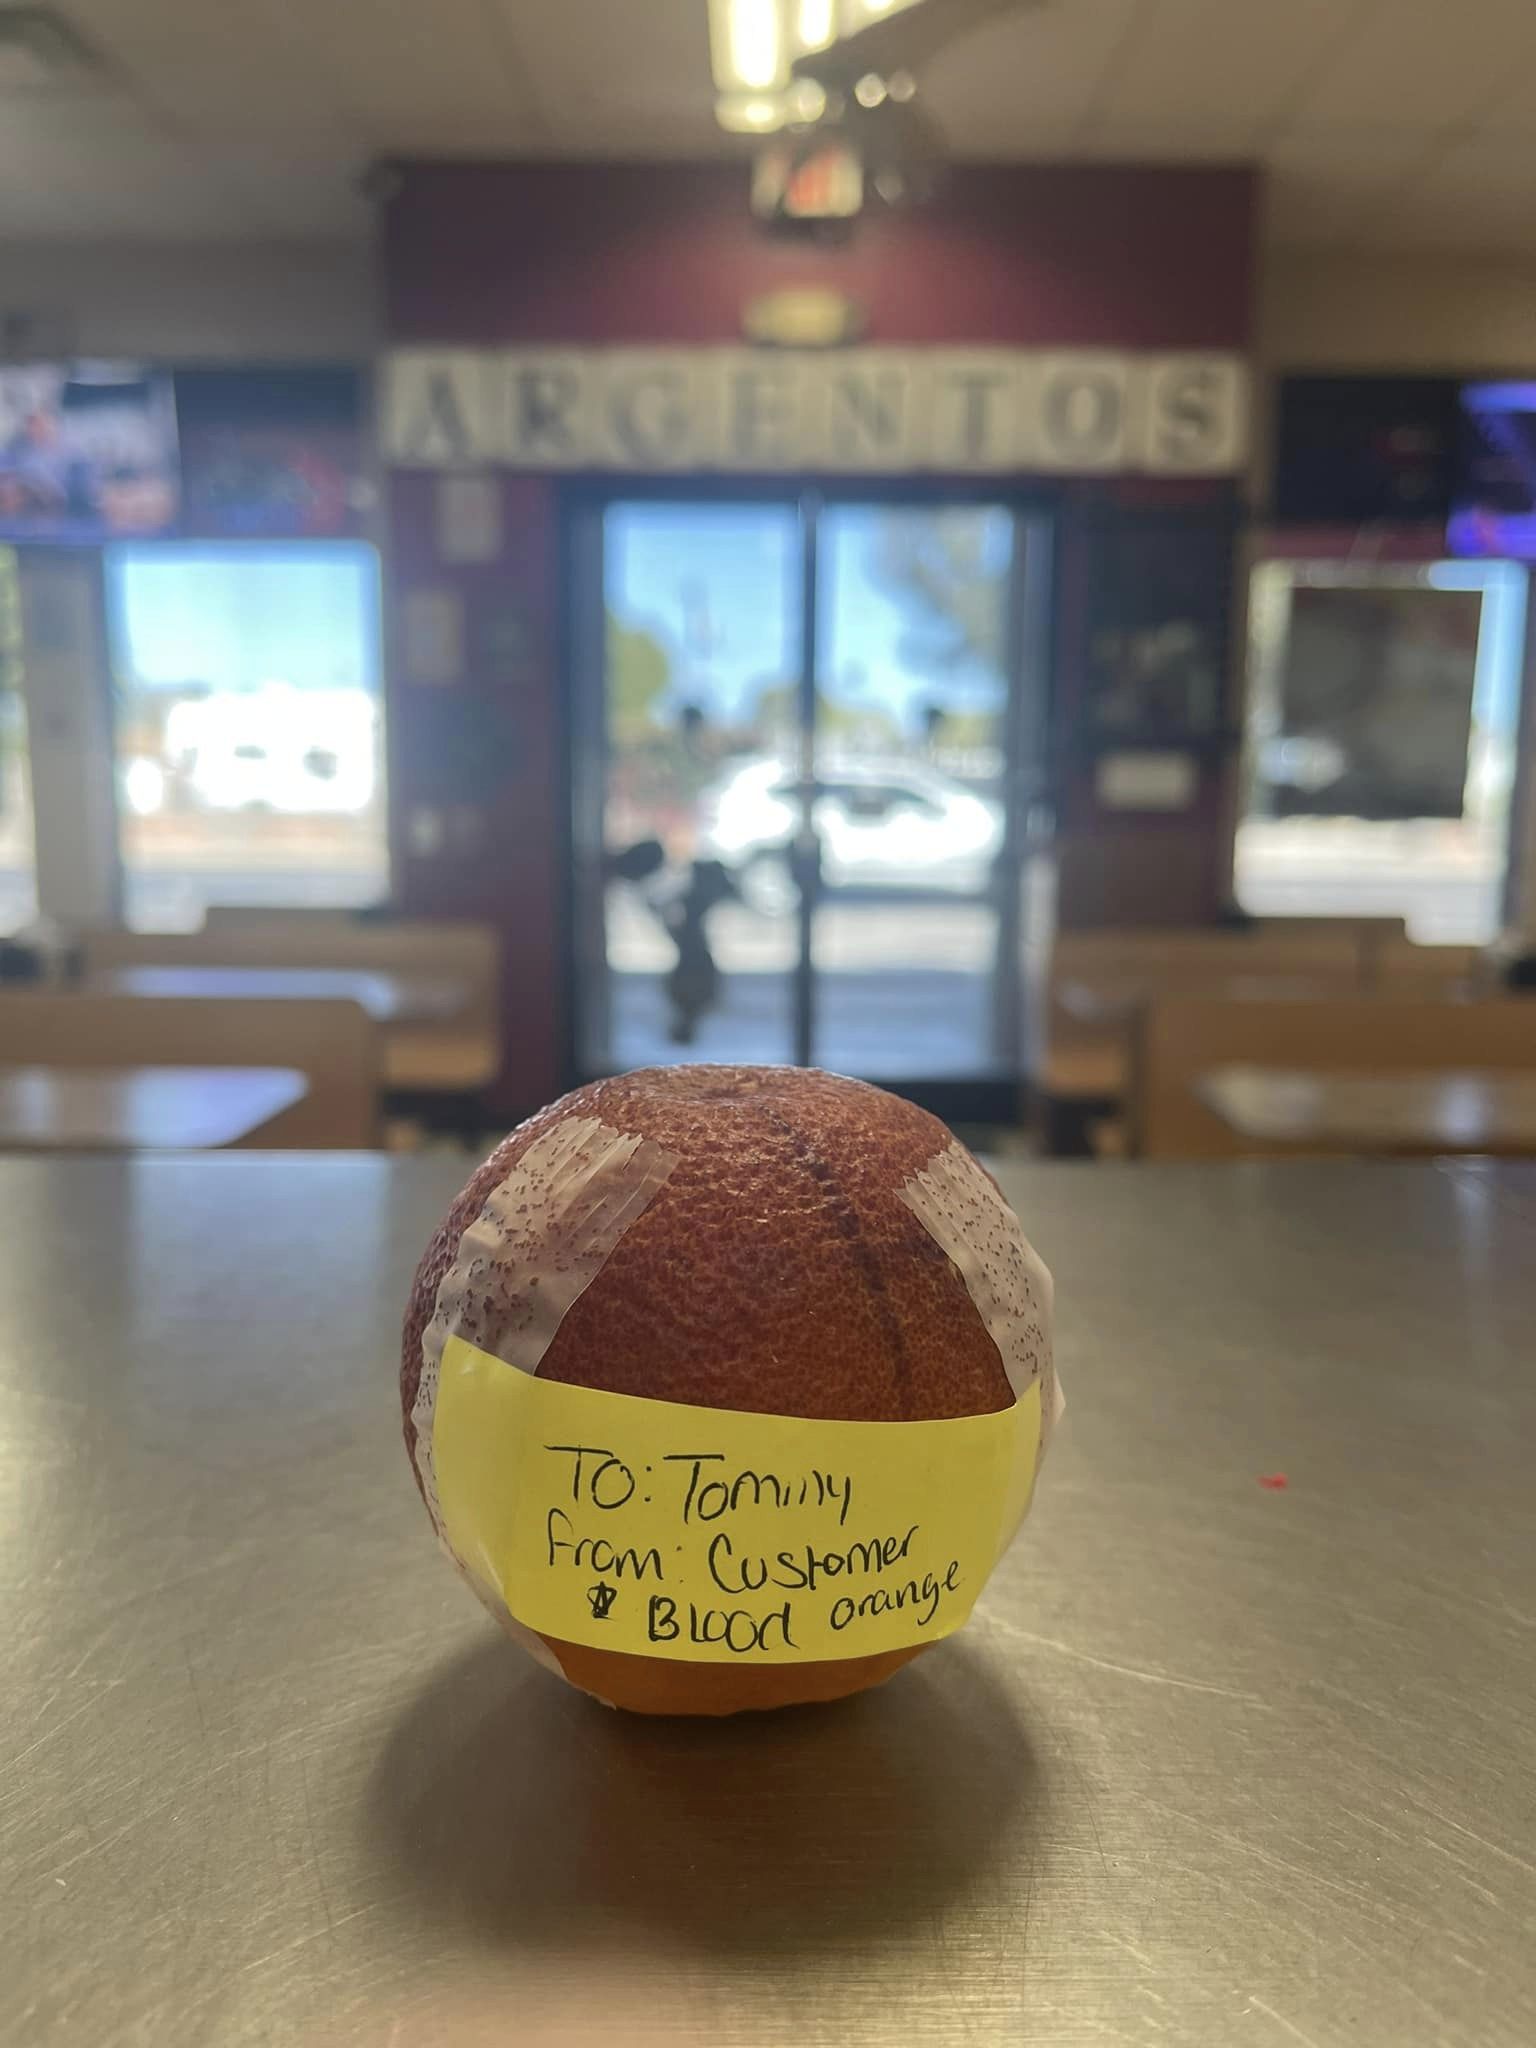 ARGENTOS
To: Tommy
From: Customer
Blood orange